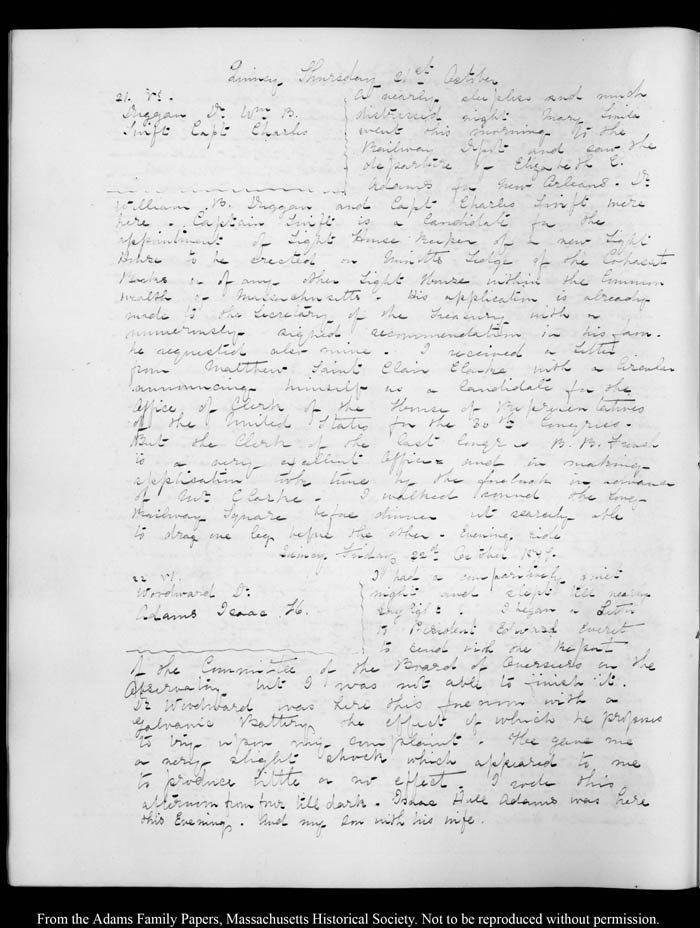 Quincy Thursday 21st October
21. VI.
Duggan Dr. Wm B.
Swift Capt Charles
A nearly sleepless and much
distressed night Mary Louisa
went this morning to the
Railway Depot and saw the
departure of Elizabeth C.
Adams for New Orleans. Dr
William B. Duggan and Capt Charles Swift were
here. Captain Swift is a Candidate for the
appointment of Light House keeper of a new Light
House to be erected on Minot's Ledge of the Cohasset
Rocks or of any other Light House within the Common
wealth of Massachusetts. His application is already
made to the Secretary of the Treasury with a
numerously signed recommendation in his favor.
he requested also mine. I received a Letter
from Matthew Saint Clair Clarke with a Circular
announcing himself as a Candidate for the
Office of Clerk of the House of Representatives
of the United States for the 30th Congress.
But the Clerk of the last Congress B. B. French
is a very excellent Officer and in making
application took time by the forelock in advance
of Mr Clarke. I walked round the long
Railway Square before dinner but scarcely able
to drag one leg before the other. Evening ride
Quincy Friday 22d October 1847.
22 VI.
Woodward Dr.
Adams Isaac H.
I had a comparatively quiet
night and slept till nearly
day light. I began a Letter
to President Edward Everett
to send with the Report
of the Committee of the Board of Overseers on the
Observatory but I was not able to finish it.
Dr Woodward was here this forenoon with a
Galvanic Battery the effect of which he proposes
to try upon my complaint. He gave me
a very slight shock which appeared to me
to produce little or no effect. I rode this
afternoon from four till dark. Isaac Hull Adams was here
this Evening. And my Son with his wife.
From the Adams Family Papers, Massachusetts Historical Society. Not to be reproduced without permission.